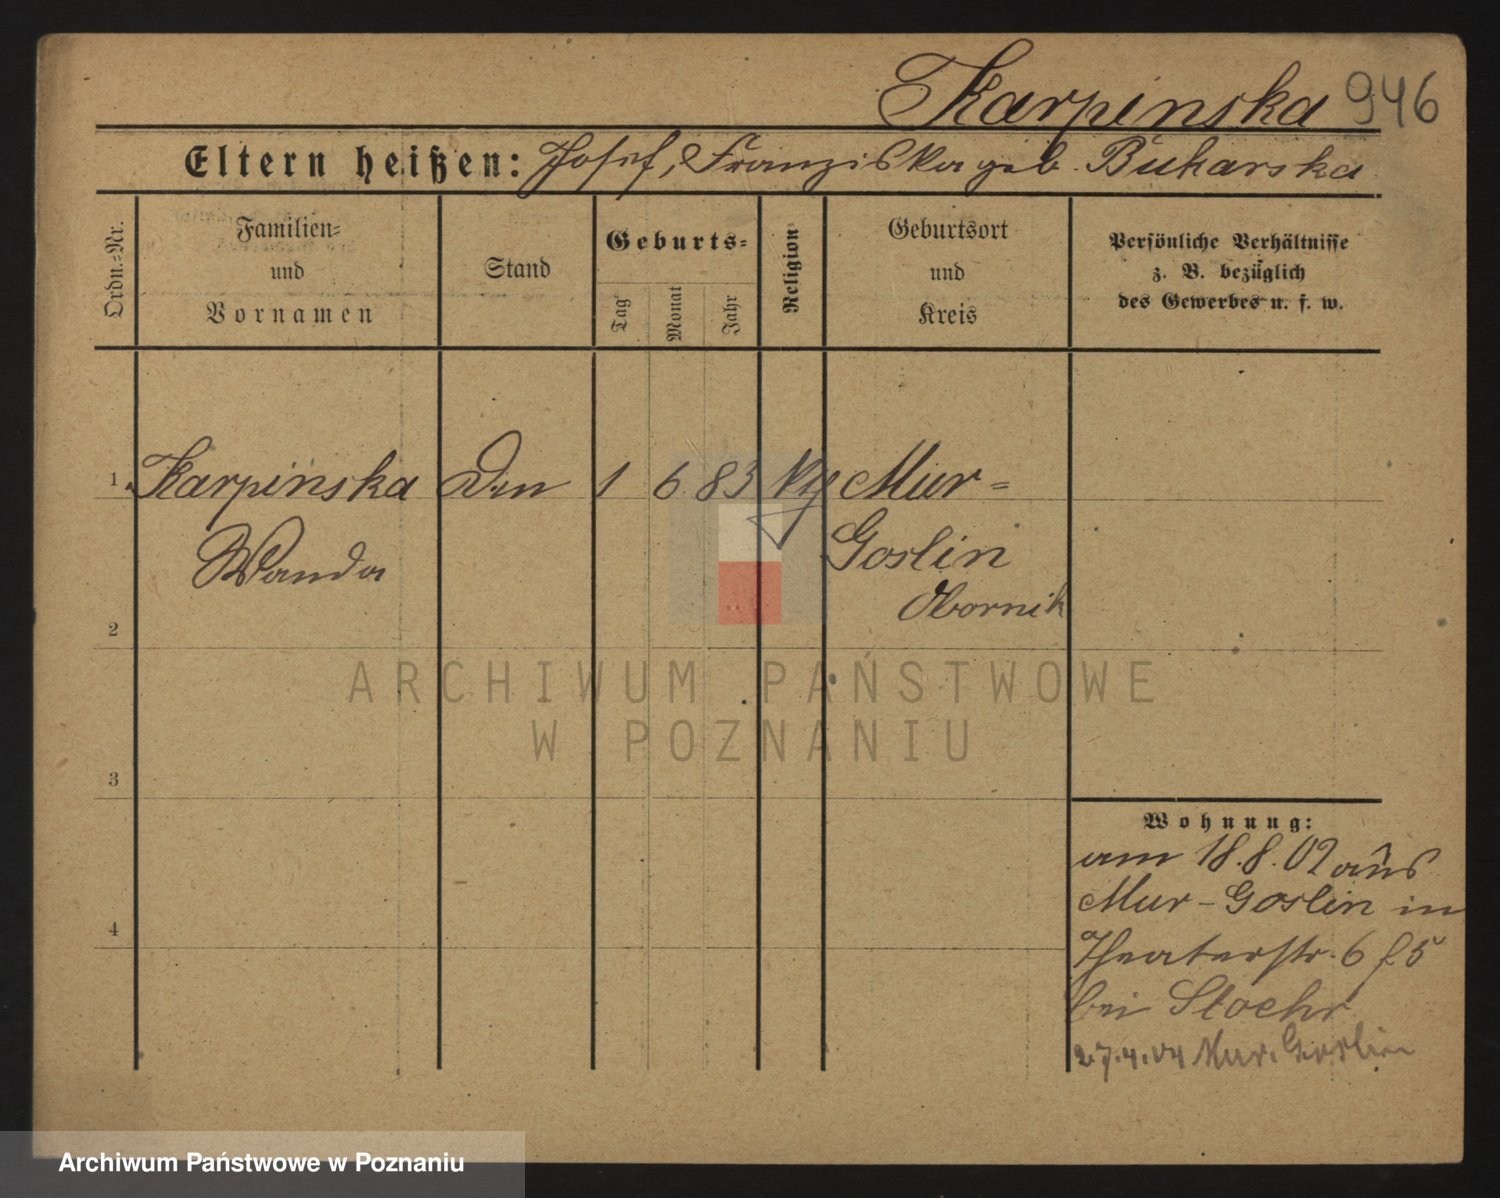 Karpinska 946
Eltern heißen: Josef, Franziska geb. Bukarska
Ordn.-Nr.
Familien-
und
Vornamen
Stand
Geburts-
Tag
Monat
Jahr
Religion
Geburtsort
und
Kreis
Persönliche Verhältnisse
z. B. bezüglich
des Gewerbes u. s. w.
1. Karpinska 1 6 83 Mur-
Wanda Goslin
Obornik
2
ARCHIWUM PAŃSTWOWE
W POZNANIU
3
Wohnung:
am 18.8.02 aus
Mur-Goslin in
4
Theaterstr. 6
bei Stoehr
27.4.04 Mur. Goslin
Archiwum Państwowe w Poznaniu